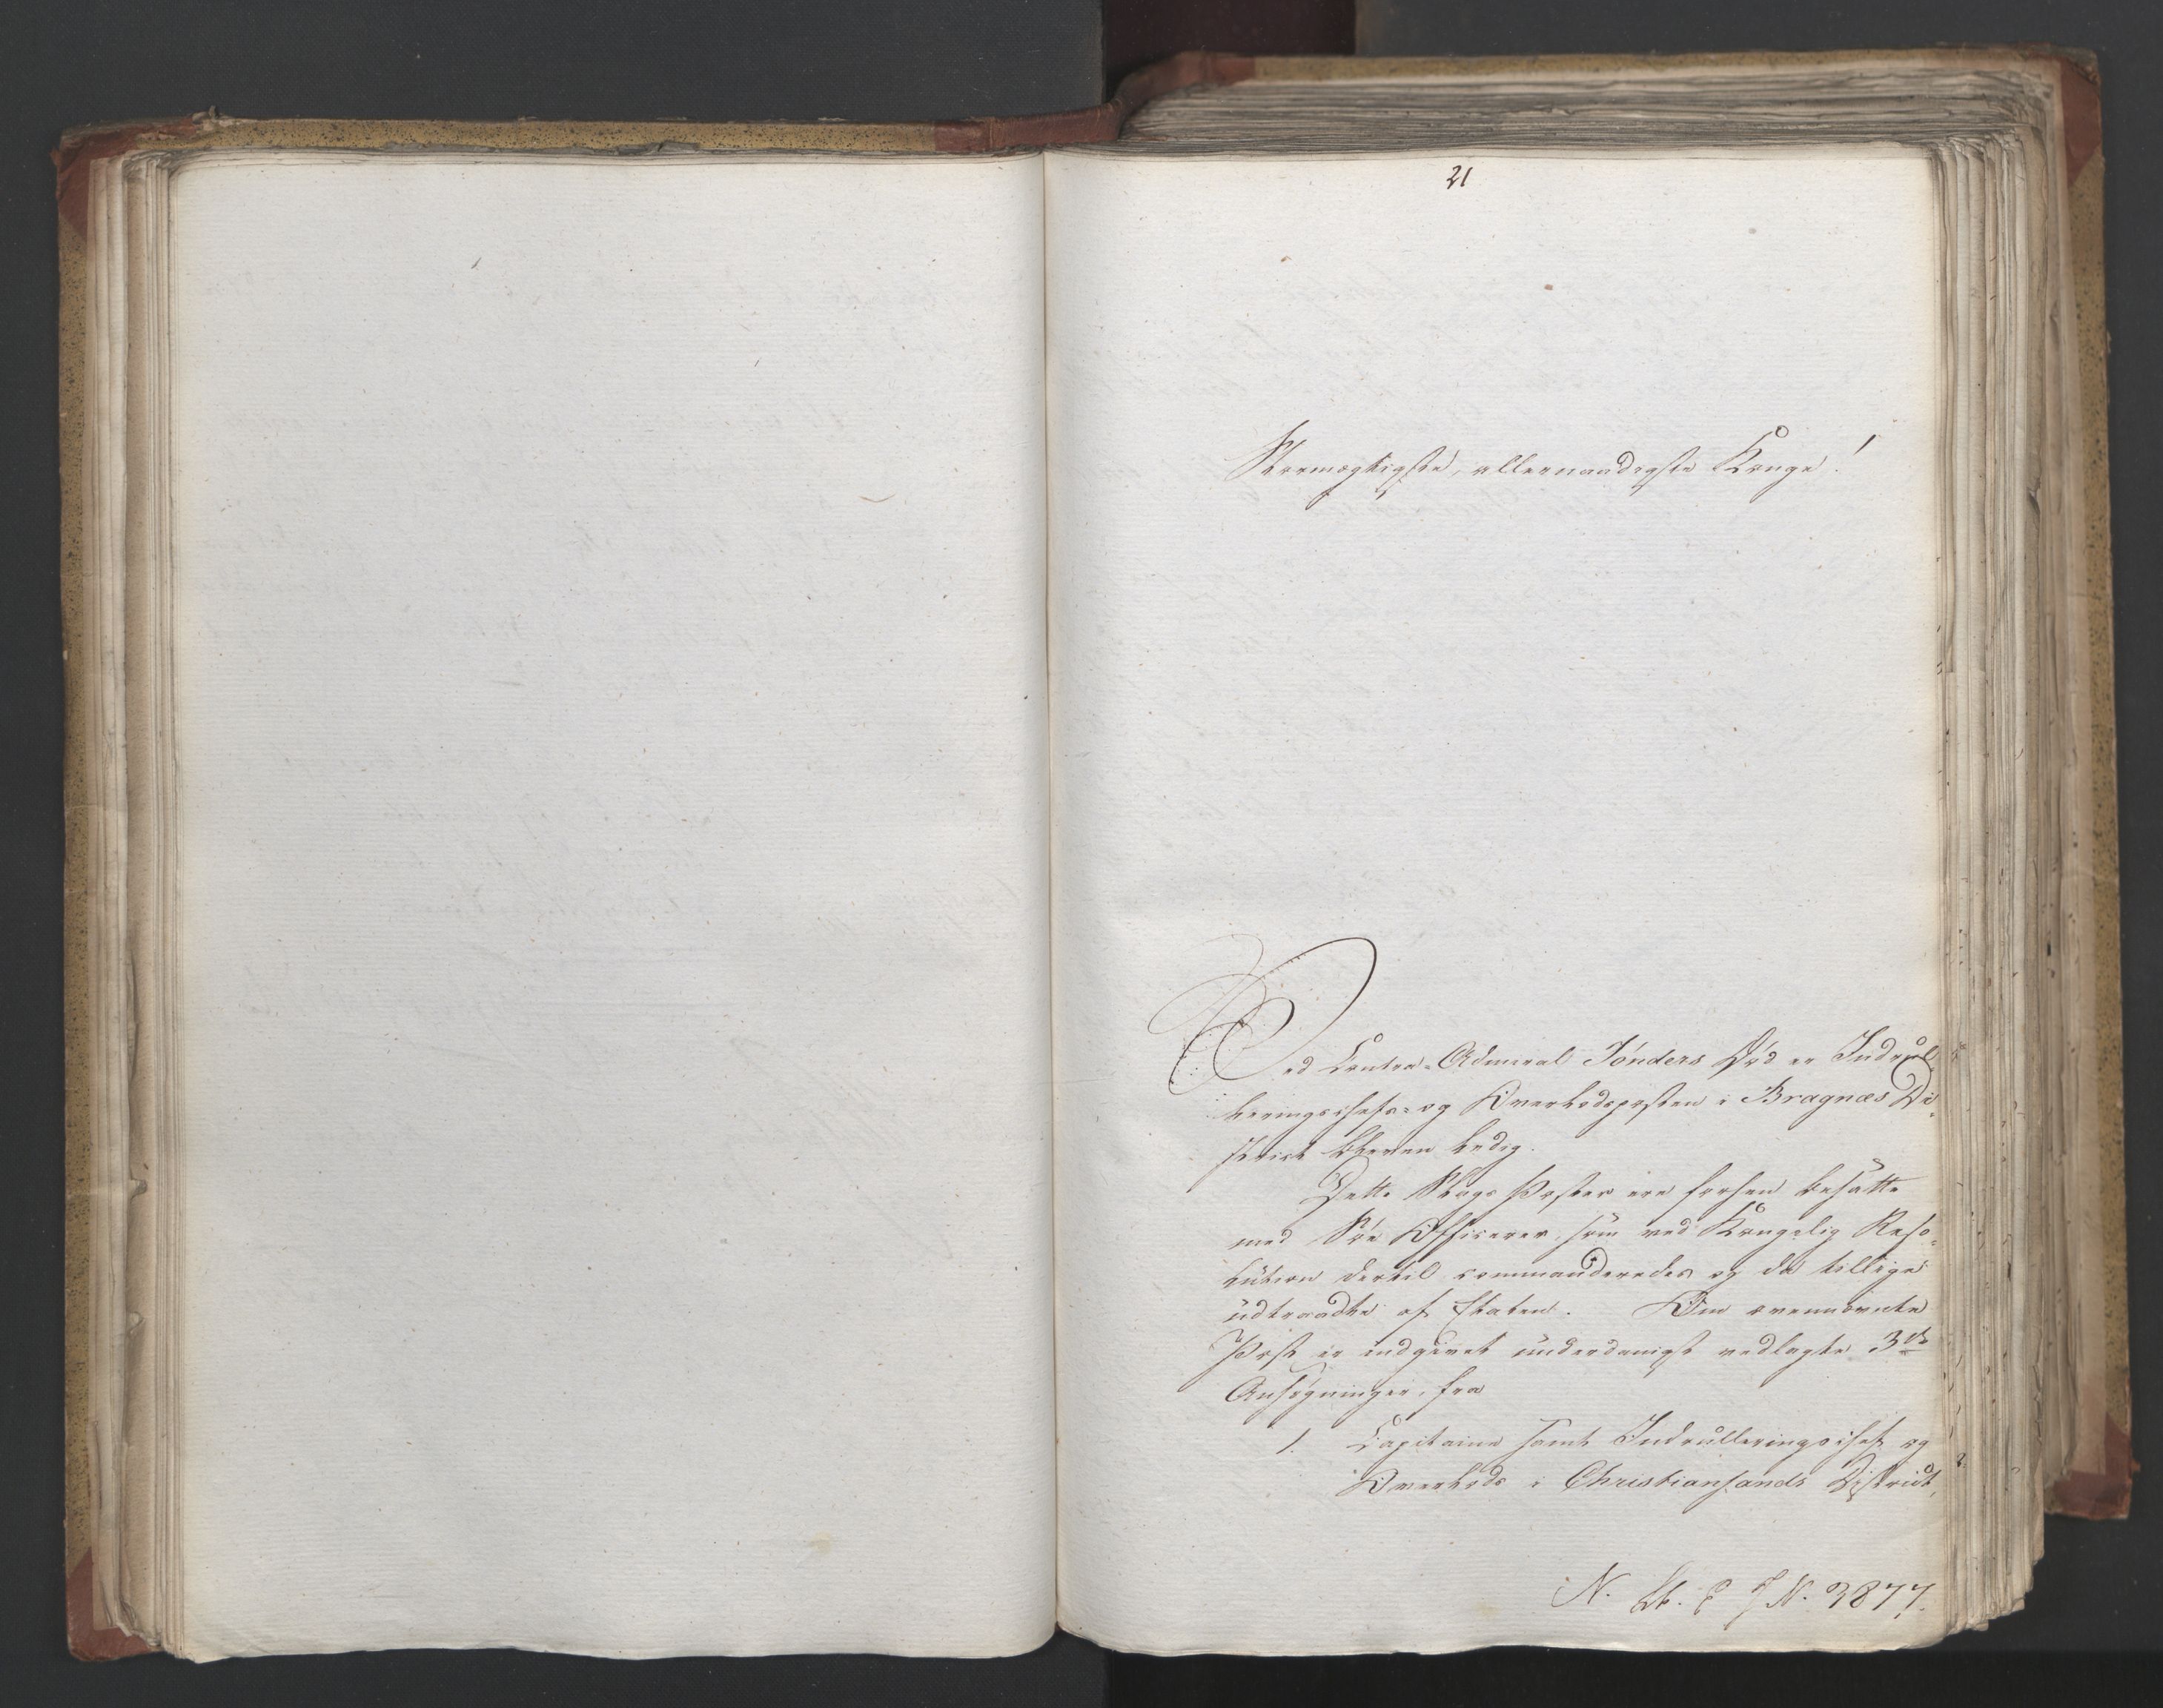 21
Stormægtigste, allernaadigste Konge!
Ved Contra-Admiral Tønders Død er Indrul-
leringschefs- og Overlodsposten i Bragnæs Di-
strict bleven ledig.
Dette Slags Poster ere forhen besatte
med Søe Officerer, som ved Kongelig Reso-
lution dertil commanderedes og da tillige
udtraadte af Etaten. Om ovennævnte
Post er indgivet underdanigst vedlagte 3de
Ansøgninger, fra
1. Capitaine samt Indrulleringschef og
Overlods i Christiansands District,
N. Lt. E J N. 3877.